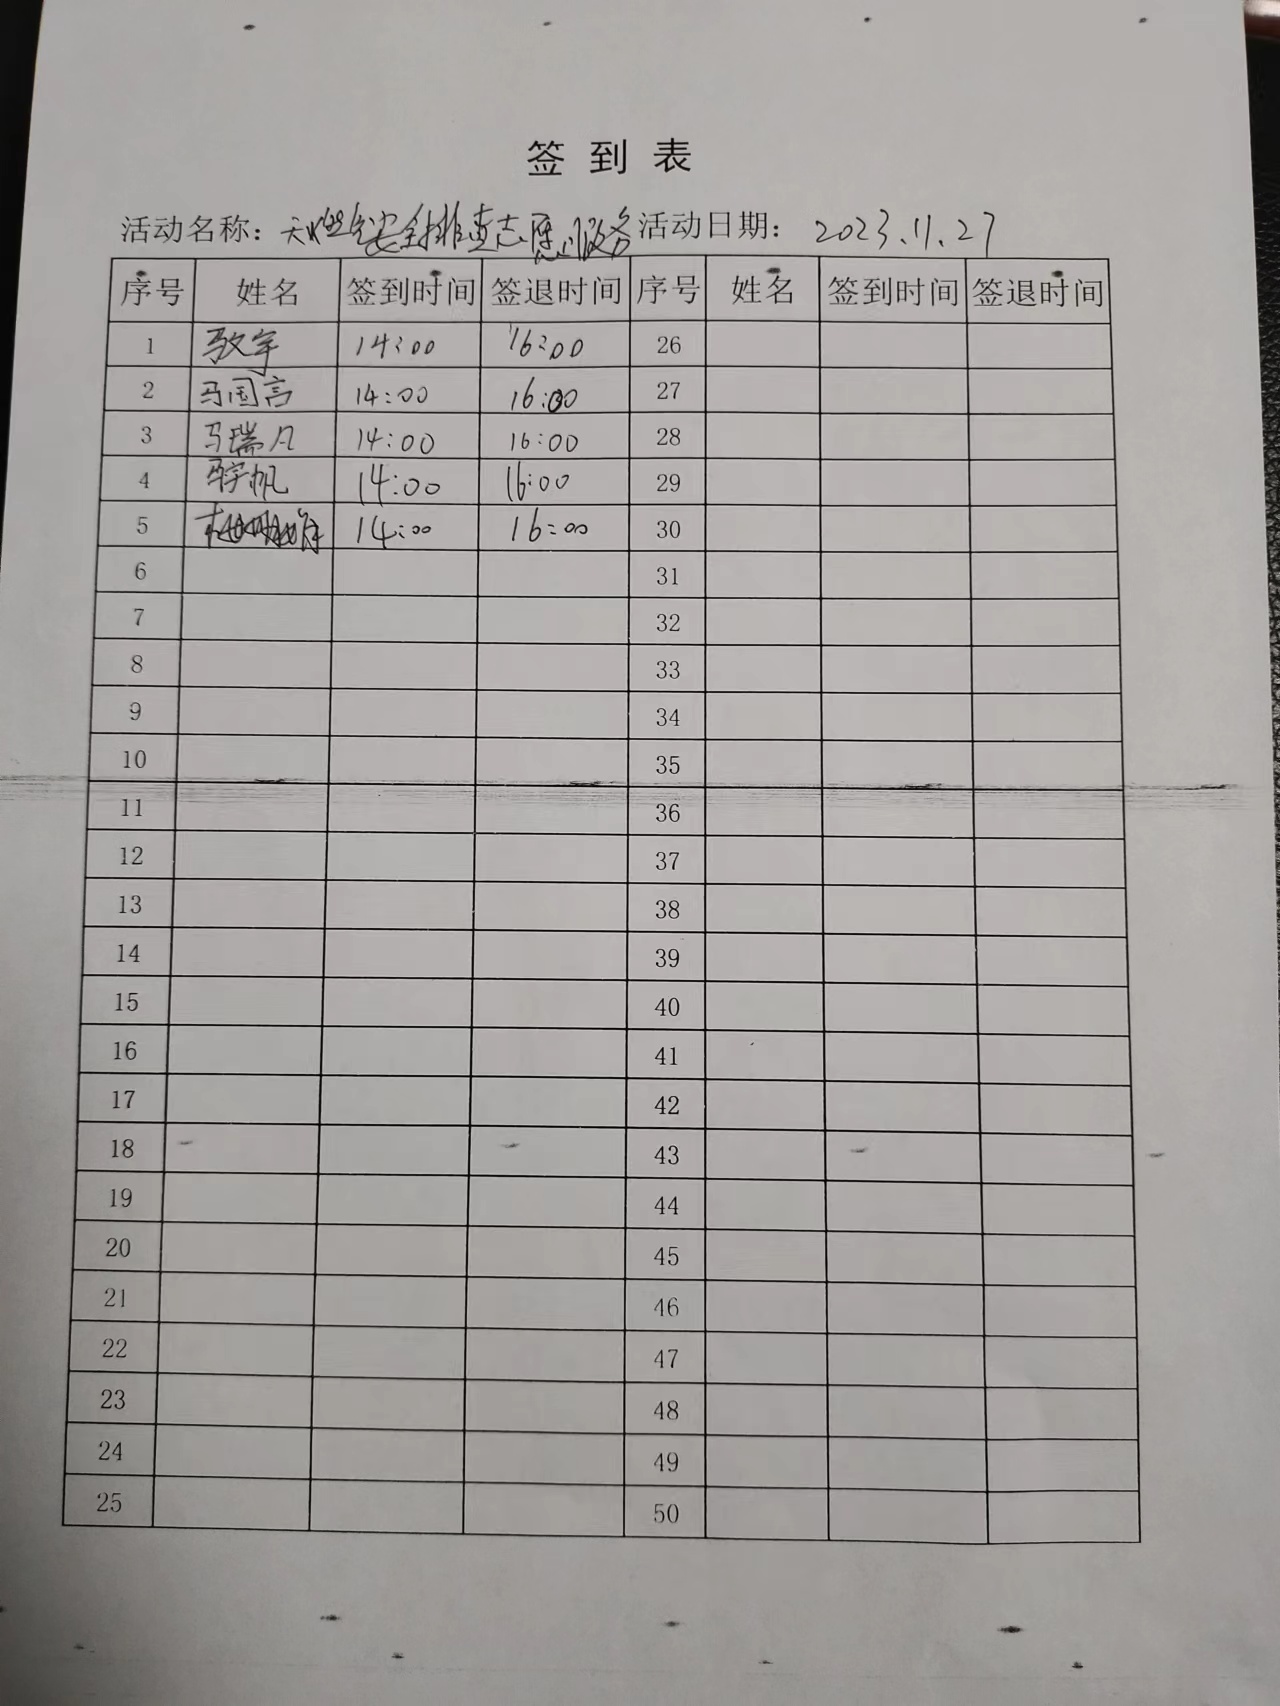 签到表
活动名称：天燃气安全排查志愿服务 活动日期：2023.11.27
序号 姓名 签到时间 签退时间 序号 姓名 签到时间 签退时间
1 14:00 16:00 26
2 马国言 14:00 16:00 27
3 马瑞凡 14:00 16:00 28
4 马宇帆 14:00 16:00 29
5 14:00 16:00 30
6 31
7 32
8 33
9 34
10 35
11 36
12 37
13 38
14 39
15 40
16 41
17 42
18 43
19 44
20 45
21 46
22 47
23 48
24 49
25 50